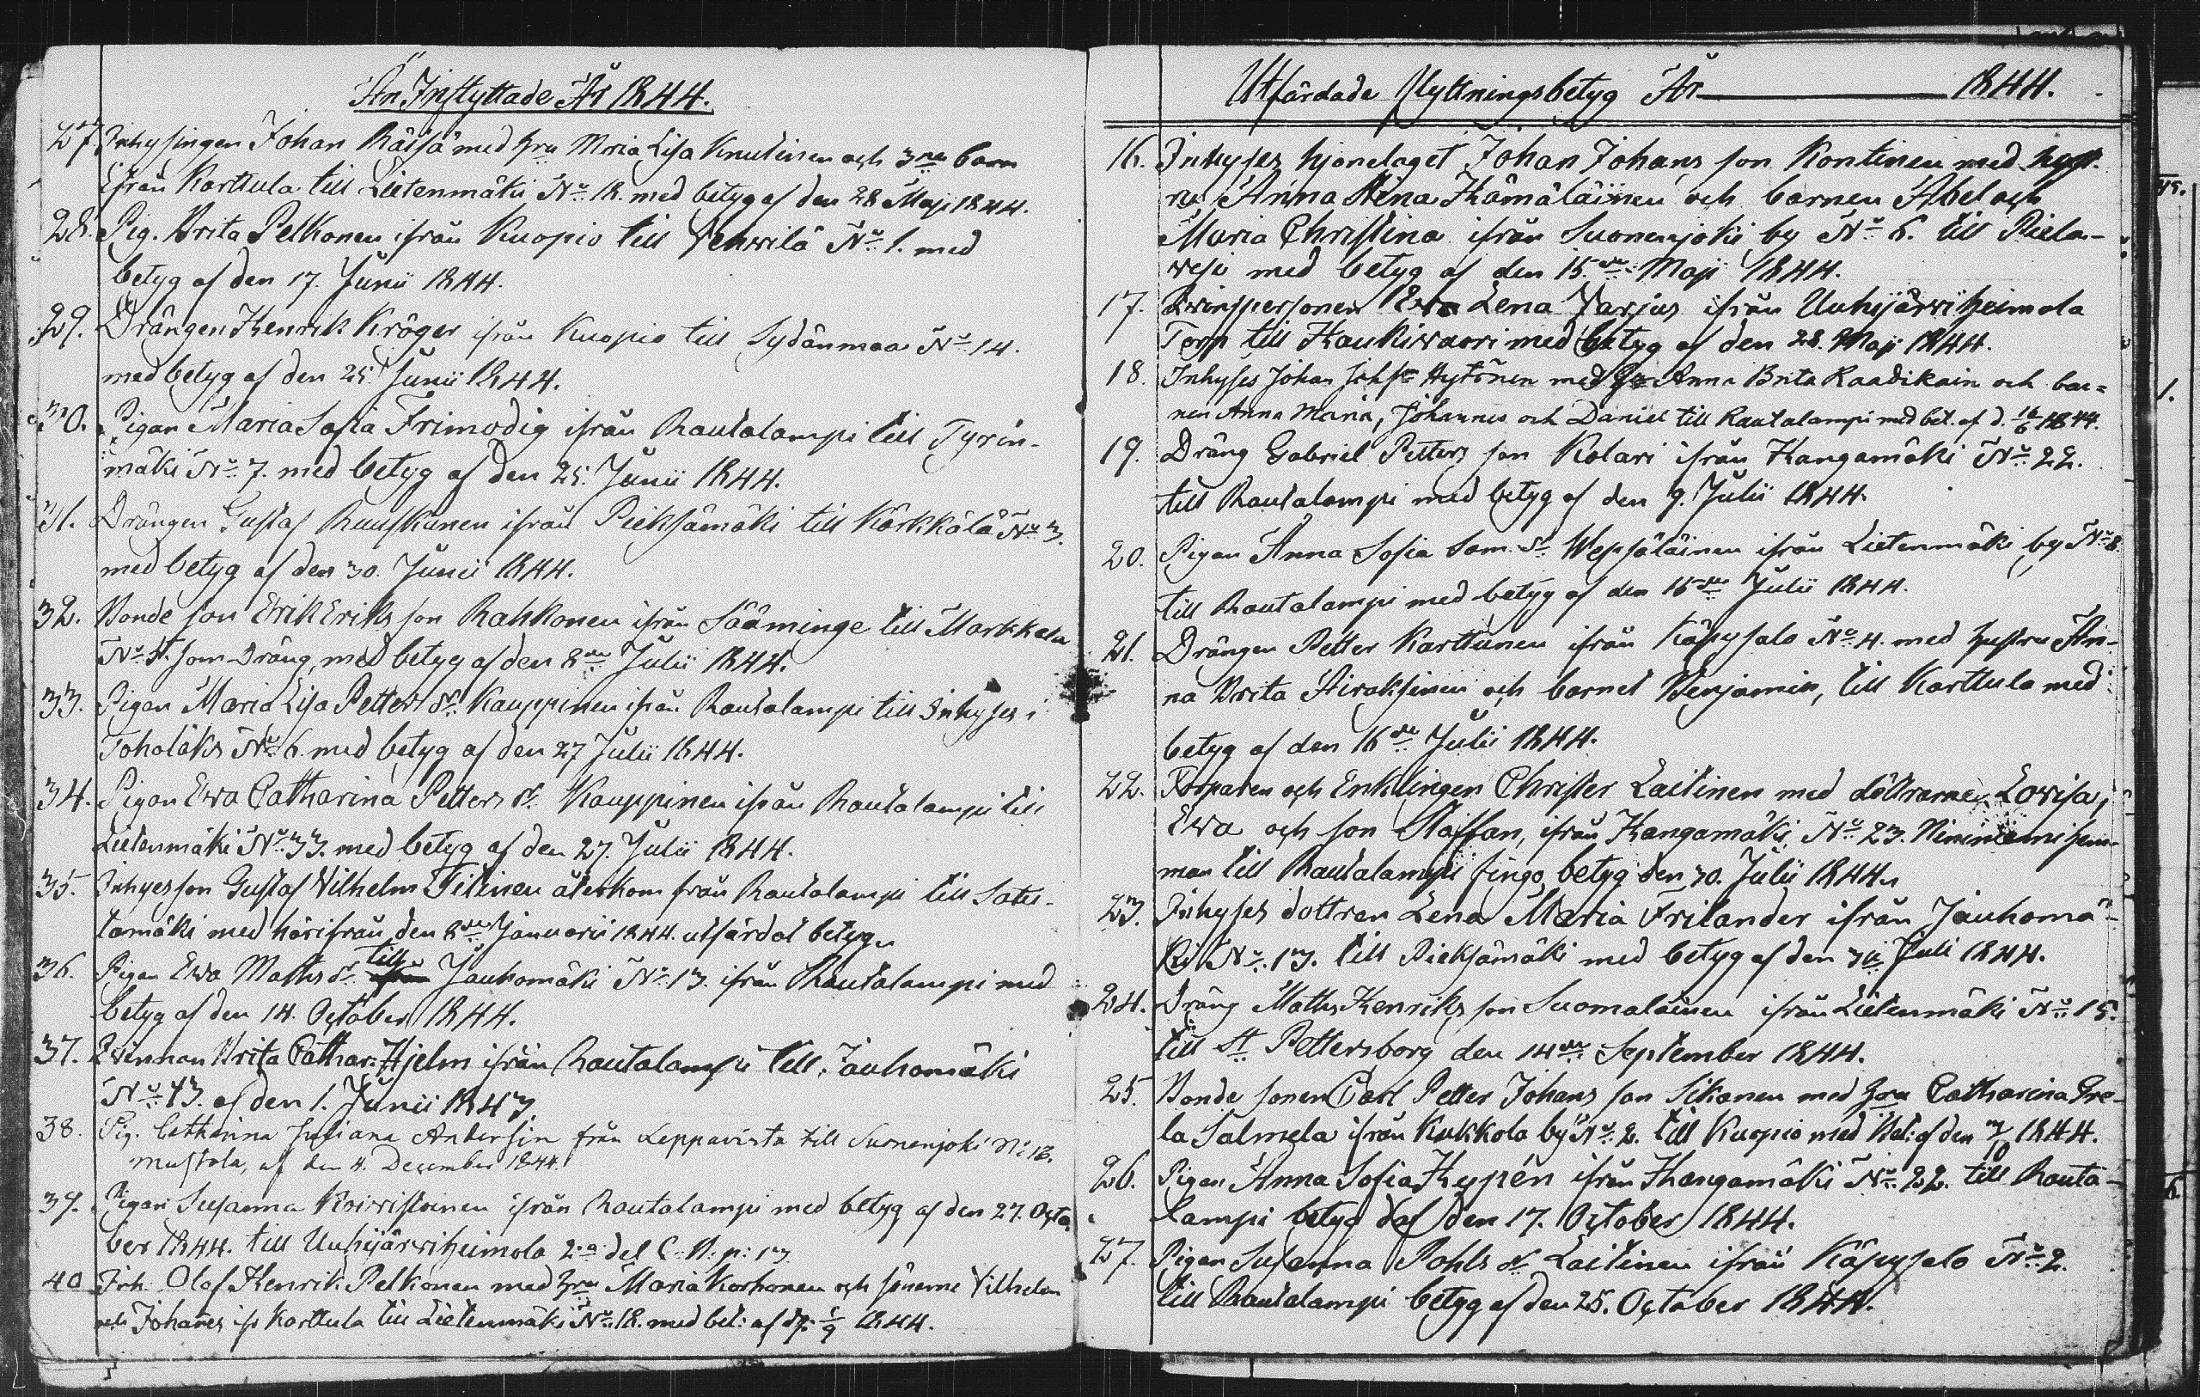 Än Inflyttade År 1844.
27. Inhysingen Johan Räisä med hru Maria Lisa Knutinen och 3ne barn
ifrån Karttula till Lietenmäki No 18. med betyg af den 28 Maji 1844.
28. Pig. Brita Pelkonen ifrån Kuopio till Vehwilä No 1. med
betyg af den 17. Junii 1844.
29. Drängen Henrik Kröger ifrån Kuopio till Sydänmaa No 14.
med betyg af den 25 Junii 1844.
30. Pigan Maria Sofia Frimodig ifrån Rautalampi till Tyrin-
mäki No 7. med betyg af den 25. Junii 1844.
31. Drängen Gustaf Rauskanen ifrån Pieksämäki till Kärkkälä No 3.
med betyg af den 30. Junii 1844.
32. Bonde son Erik Eriks son Rahkonen ifrån Sääminge till Markkala
No som Dräng med betyg af den 8de Julii 1844.
33. Pigan Maria Lisa Petters dr Kauppinen ifrån Rautalampi till Inhyses i
Toholaks No 6. med betyg af den 27 Julii 1844.
34. Pigan Ewa Catharina Petters dr Kauppinen ifrån Rautalampi till
Lietenmäki No 33. med betyg af den 27. Julii 1844.
35. Inhyses son Gustaf Vilhelm Titinen återkom från Rautalampi till Sate-
lamäki med härifrån den 8de Januarii 1844. utfärdat betyg.
36. Pigan Ewa Matts dr till Jauhomäki No 13. ifrån Rautalampi med
betyg af den 14. October 1844.
37. Qvinnan Brita Cathar: Hjelm ifrån Rautalampi till Jauhomäki
No 13. af den 1. Junii 1843.
38. Pig. Catharina Juliana Andersin från Leppävirta till Suonenjoki No 12.
Mustola, af den 4. December 1844.
39. Pigan Susanna Koivistoinen ifrån Rautalampi med betyg af den 27. Octo
ber 1844. till Uuhijärviheimola 2a del C. B. p: 13
40 Inh. Olof Henrik Pelkonen med hru Maria Korhonen och sönerne Vilhelm
och Johanes ifr Karttula till Lietenmäki No 18. med bet: af d. 1/9 1844.
Utfärdade Flyttningsbetyg År 1844.
16. Inhyses hjonelaget Johan Johans son Kontinen med hust-
ru Anna Lena Hämäläinen och barnen Abel och
Maria Christina ifrån Suonenjoki by No 6. till Piela-
vesi med betyg af den 15de Maji 1844.
17. Qvinspersonen Ewa Lena Varjus ifrån Uuhijärwiheimola
Torp till Haukiwuori med betyg af den 28. Maji 1844.
18. Inhyses Johan Johss Hytönen med hr Anna Brita Raadikain och bar-
nen Anna Maria, Johannes och Daniel till Rautalampi med bet. af d. 16/6 1844.
19. Dräng Gabriel Petters son Kolari ifrån Kangamäki No 22.
till Rautalampi med betyg af den 9. Julii 1844.
20. Pigan Anna Sofia Sam. dr Wepsäläinen ifrån Lietenmäki by No 8.
till Rautalampi med betyg af den 15de Julii 1844.
21. Drängen Petter Karttunen ifrån Käpysalo No 4. med hustru An-
na Brita Airaksinen och barnet Benjamin, till Karttula med
betyg af den 16de Julii 1844.
22. Torparen och Enklingen Christer Laitinen med döttrarne Lovisa,
Ewa och son Staffan, ifrån Kangamäki No 23.
man till Rautalampi fingo betyg den 30. Julii 1844.
23. Inhyses dottren Lena Maria Frilander ifrån Jauhomä-
ki No 13. till Pieksämäki med betyg af den 30 Juli 1844.
24. Dräng Matts Henriks son Suomalainen ifrån Lietenmäki No 15.
till St Pettersborg den 14de September 1844.
25. Bonde sonen Carl Petter Johans son Sikanen med hru Catharina Gre-
ta Salmela ifrån Kukkola by No 2. till Kuopio med Bet: af den 1844.
26. Pigan Anna Sofia Hypén ifrån Kangamäki No 22. till Rauta-
lampi betyg af den 17. October 1844.
27. Pigan Susanna Pohls dr Laitinen ifrån Käpysalo No 2.
till Rautalampi betyg af den 25. October 1844.